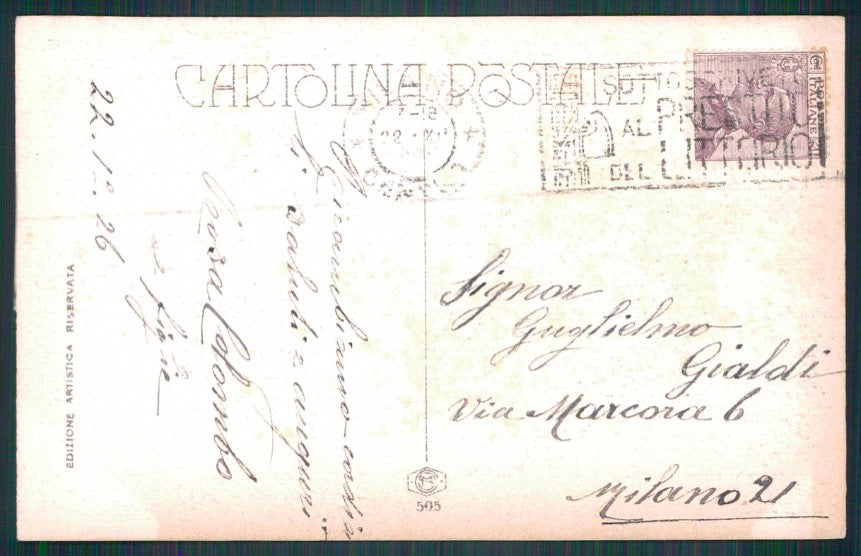 CARTOLINA POSTALE
7-18
22 XII
CENTRO
SOTTOSCRIVETE
AL PRESTITO
DEL LITTORIO
POSTE ITALIANE
22.12.26
Ricambiamo cordia
li saluti e auguri
Rosa Colombo
e figlie
Signor
Guglielmo
Gialdi
Via Marcora 6
Milano 21
EDIZIONE ARTISTICA RISERVATA
505